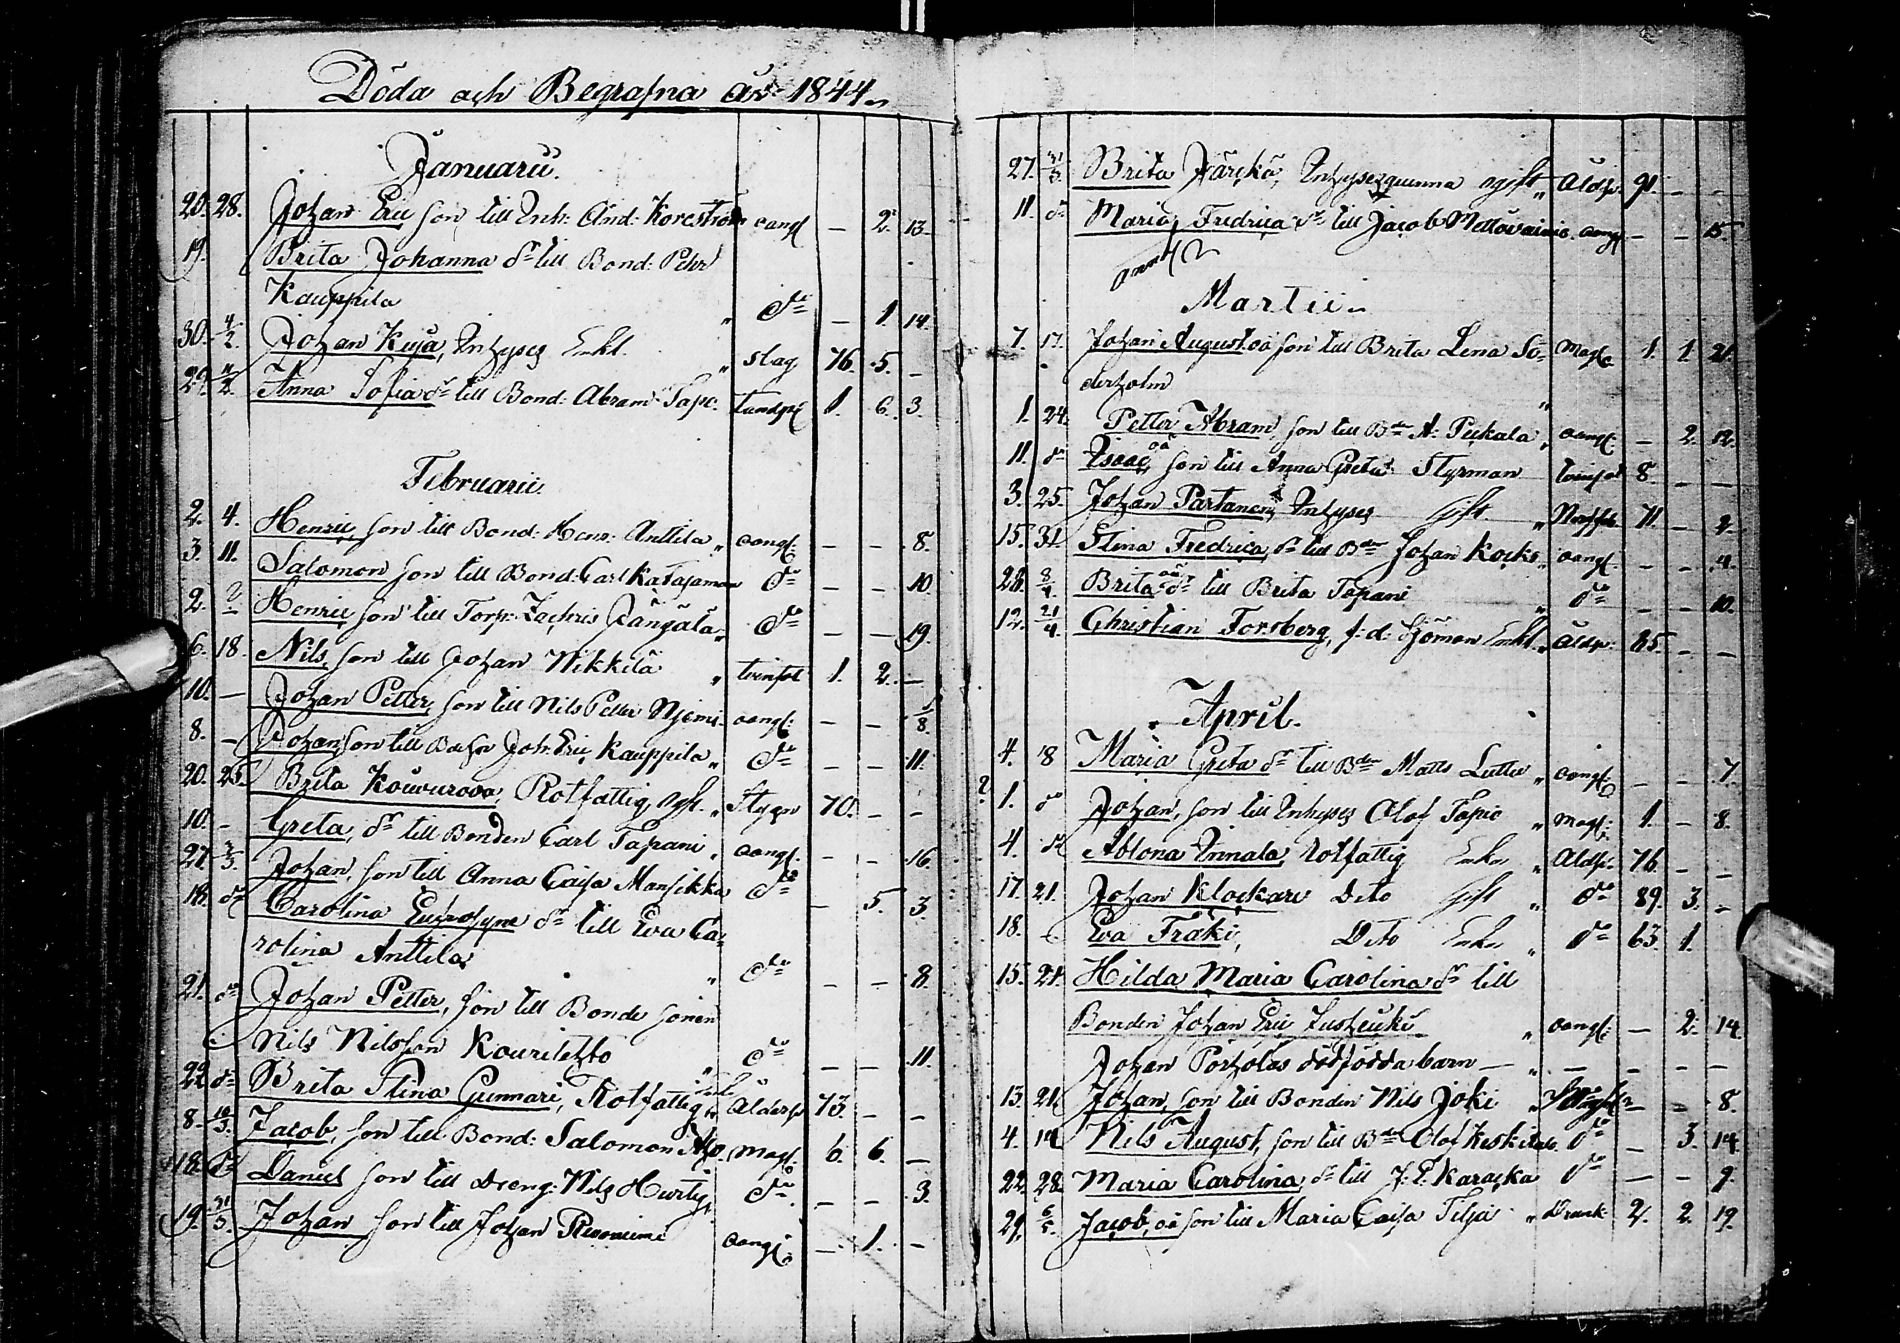 Döda och Begrafna år 1844.
Januarii.
20. 28. Johan Eric son till Inh: And: Koreström oangf — 2. 13.
19. Brita Johanna dr till Bond: Pehr
Kauppila " do — 1. 14.
30. 4/2. Johan Kuja, Inhyses Enkl. " slag 76. 5. —
29. Anna Sofia dr till Bond: Abram Tapio. 1. 6. 3.
Februarii.
2. 4. Henric, son till Bond: Henr: Anttila " oangf: — — 8.
3. 11. Salomon son till Bond: Carl Katajamaa do — — 10.
2. Henric son till Torp: Zachris " do — — 19.
6. 18. Nils, son till Johan Nikkilä " tvinsot 1. 2. —
10. — Johan Petter, son till Nils Petter Njemi oangf: — — 8.
8. — Johan son till Johan Eric Kauppila " do — — 11.
20. 25. Brita Kouvurova, Rotfattig, ogft. " Stygn 70. — —
10. — Greta, dr till Bonden Carl Tapani " oangf. — — 16.
27. 3/3. Johan, son till Anna Caisa Mansikka do — 5. 3.
18. do Carolina Eufrosyne dr till Eva Ca-
rolina Anttila " do — — 8.
21. do Johan Petter, son till Bonde sonen
Nils Nilsson Kourilehto " do — — 11.
22. do Brita Stina Gunnari, Rotfattig Ålders 73. — —
8. 10/3. Jacob, son till Bond: Salomon Alp. Magf. 6. 6. —
18. do Daniel son till Dreng: Nils Hurtig. do — — 3.
19. 31/3. Johan son till Johan oangf: — 1. —
27. 31/3. Brita Järckä, Inhysesquinna ogift " Åldr. 91. — —
11. do Maria Fredrica dr till Jacob Mettovainio. oangf — — 15.
Martii.
7. 17. Johan August oä son till Brita Lena Sö- Magf. 1. 1. 21.
derholm "
1. 24. Petter Abram, son till Bden A: Peckala " oangf. — 2. 12.
11. do Isaac, oä son till Anna Greta Styrman tvinsot 8. — —
3. 25. Johan Partanen, Inhyses gift " 71. — 2.
15. 31. Stina Fredrica, dr till Bden Johan Kocko " oangf — — 4.
28. 8/4. Brita oä dr till Brita Tapani " do — — 10.
12. 21/4. Christian Forsberg, f: d: Sjöman Enkl. " Åldr. 85. — —
April.
4. 8 Maria Greta dr till Bden Matts Lutta " oangf. — — 7.
1. do Johan, son till Inhyses Olof Tapio " Magf: 1. — 8.
4. do Ablona Innala, Rotfattig Enka " Åldr. 76. — —
17. 21. Johan Klockare Dito gift " do 89. 3. —
18. Eva Fräki, Dito Enka " do 63. 1.
15. 21. Hilda Maria Carolina dr till
Bonden Johan Eric " oangf: — 2. 14.
Johan Porholas dödfödda barn — " — — — —
13. 21. Johan, son till Bonden Nils Joki " — — 8.
4. 14. Nils August, son till Bden Olof Keskitalo. do — 3. 14.
22. 28. Maria Carolina, dr till J. P. Karacka do — — 9.
29. 5/5. Jacob, oä son till Maria Caisa Tilja " Drunk: 2. 2. 19.